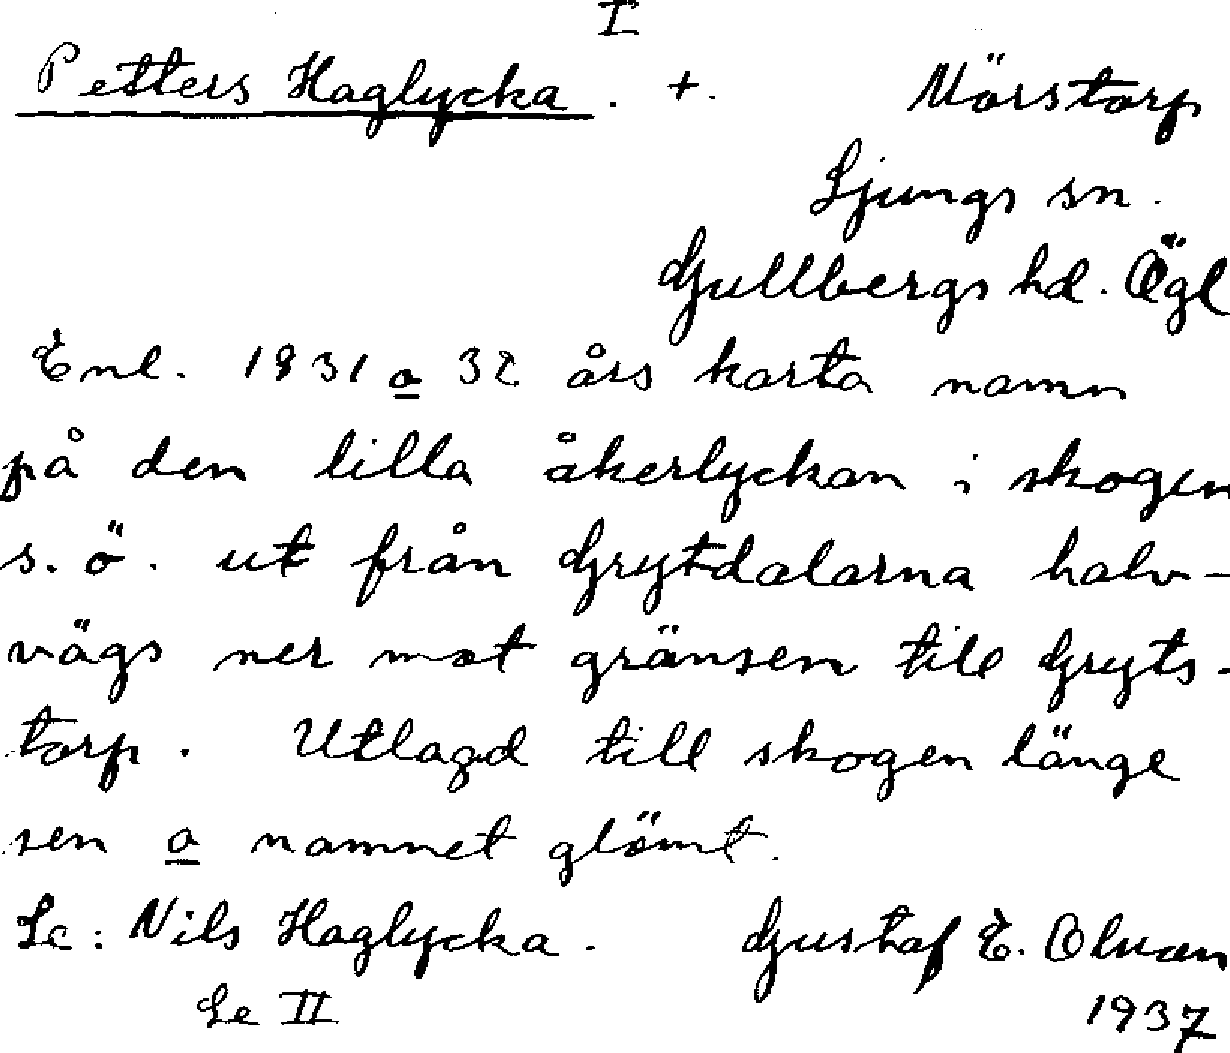 I
Petters Haglycka. +. Mörstorp
Ljungs sn.
Gullbergs hd. Ögl
Enl. 1831 o 32 års karta namn
på den lilla åkerlyckan i skogen
s. ö. ut från Grytdalarna halv-
vägs ner mot gränsen till Gryts-
torp. Utlagd till skogen länge
sen o namnet glömt.
Se: Nils Haglycka. Gustaf E. Olsson
Se II 1937